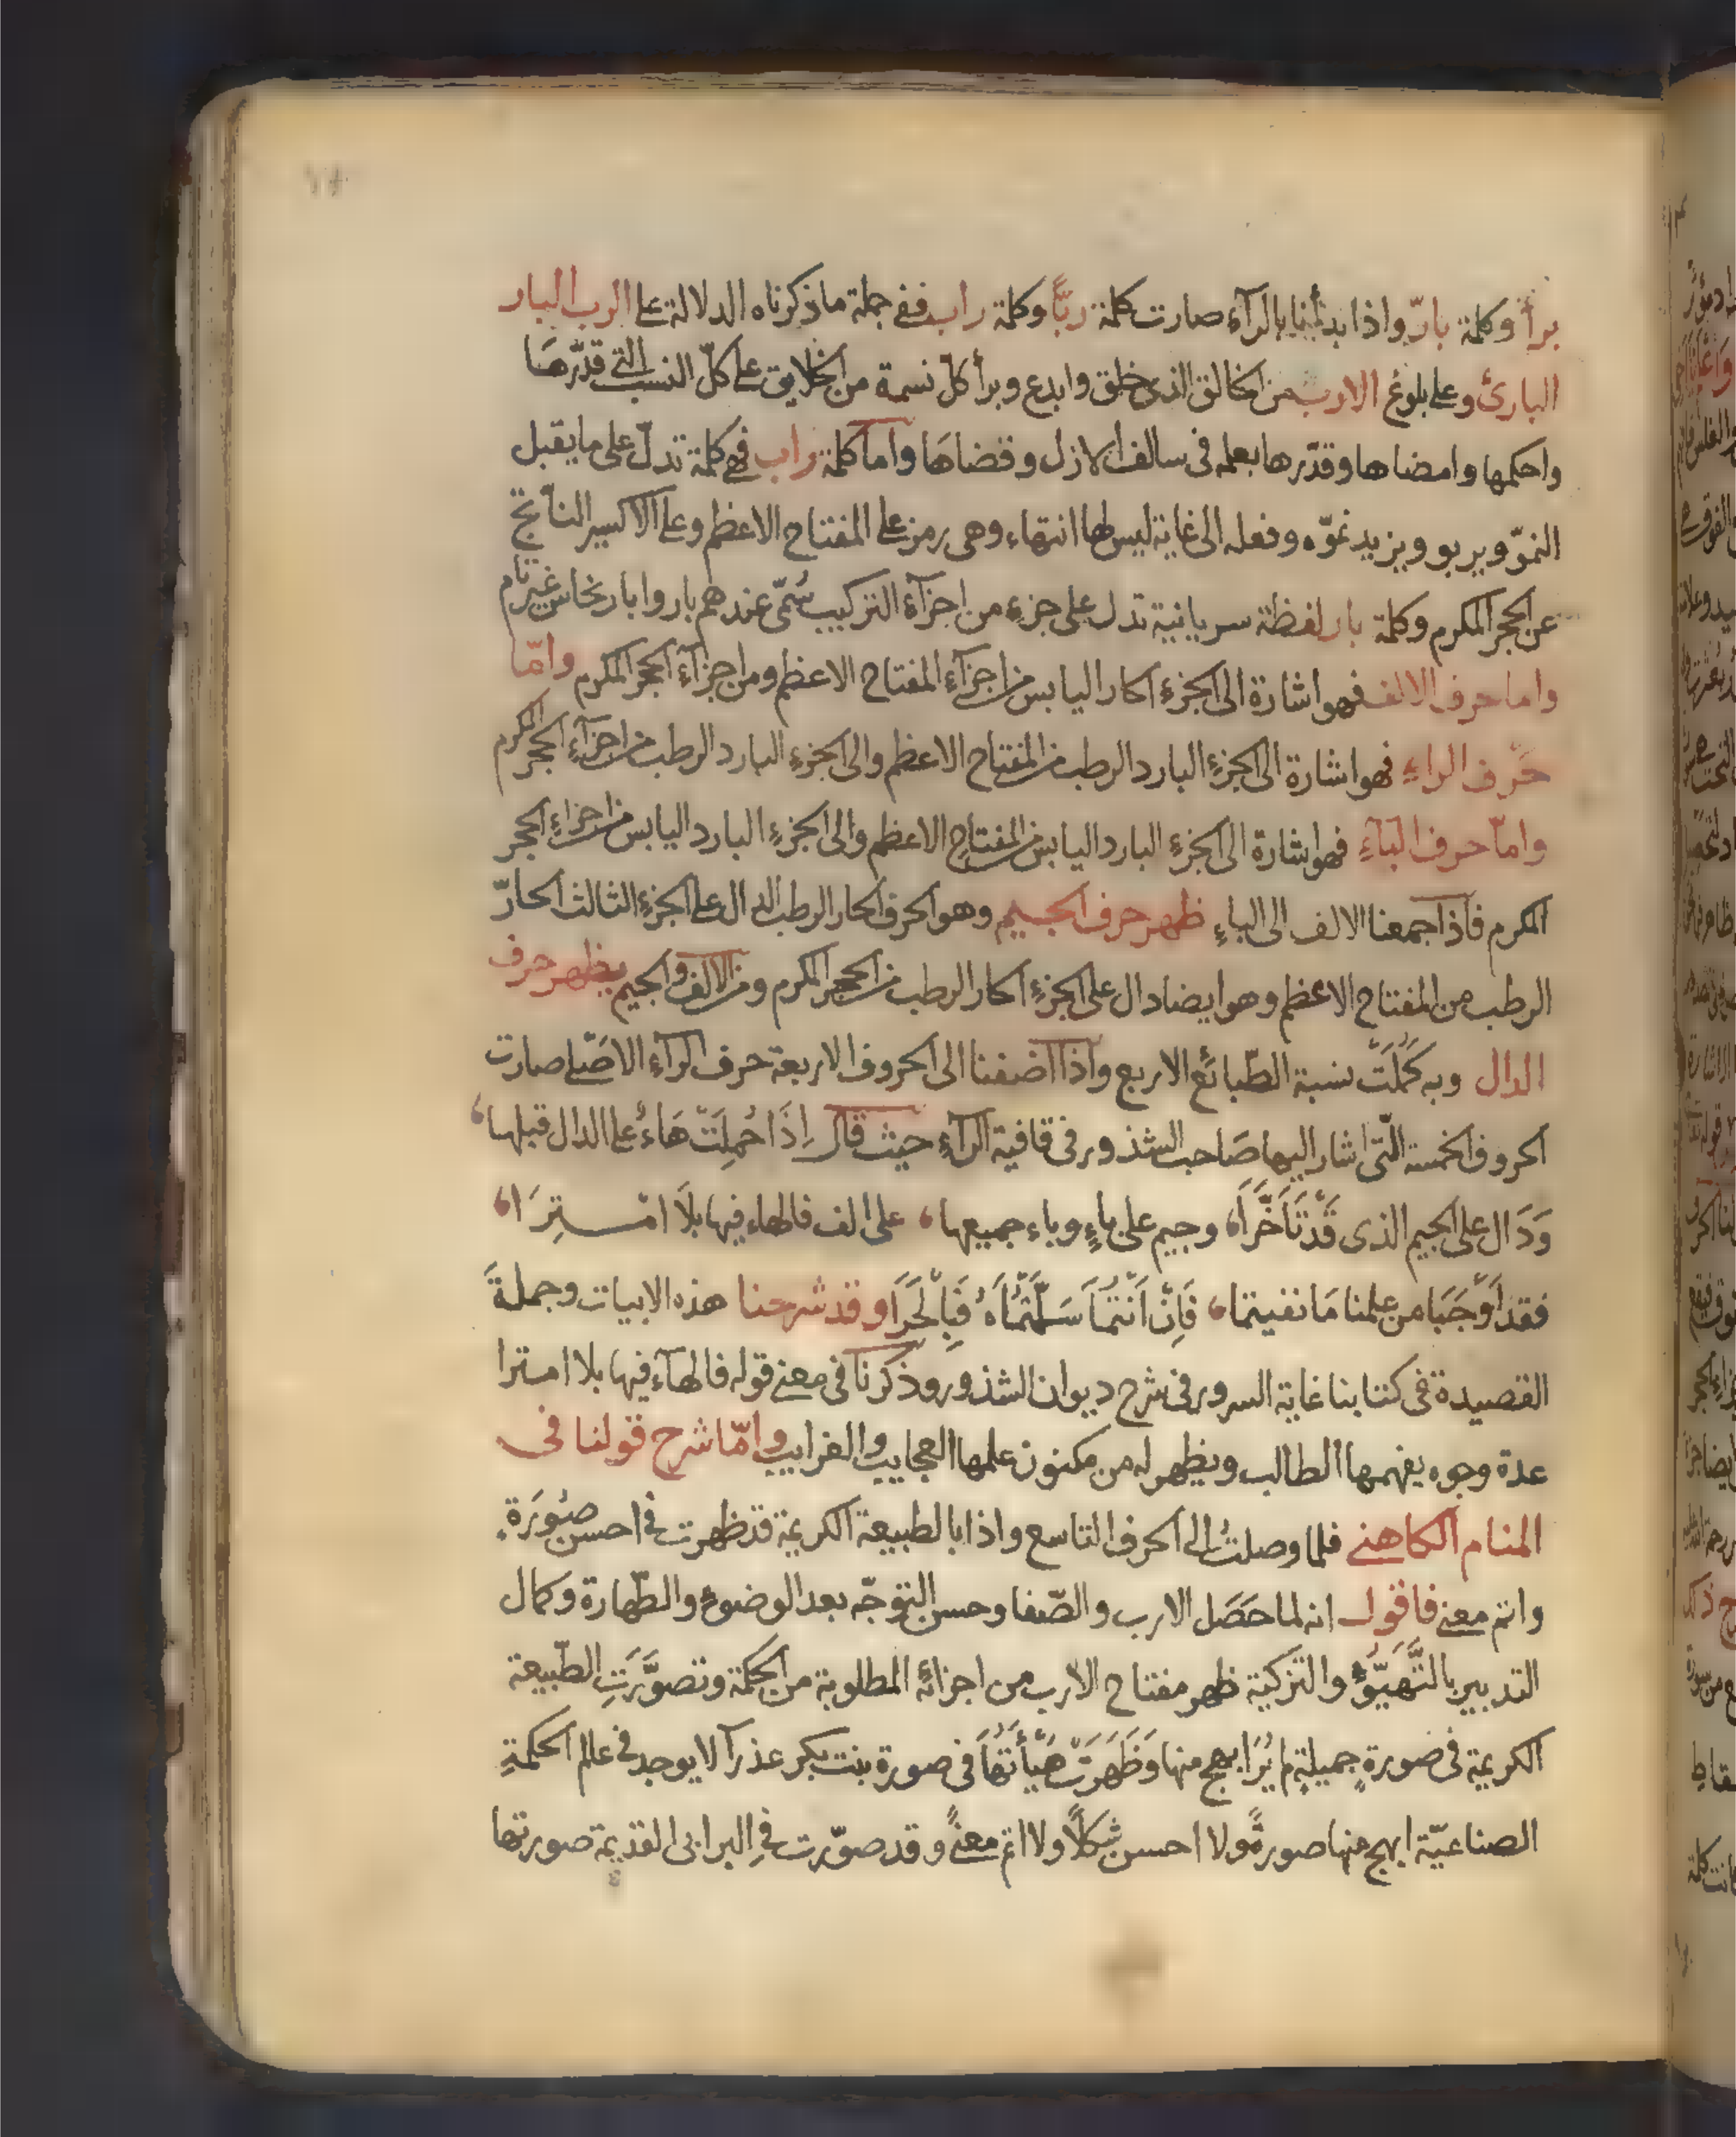 برأ وكلمة بارّ واذا بدأنا بالرآء صارت كلمة ربًّا وكلمة راب ففى جملة ما ذكرناه الدلالة على الرب البار
البارئ وعلى بلوغ الارب من الخالق الذى خلق وابدع وبرأ كل نسمة من الخلايق على كلّ النسب التى قدّرها
واحكمها وامضاها وقدّرها بعلمه فى سالف الازل وقضاها واما كلمة راب فهى كلمة تدلّ على ما يقبل
النموّ ويربو ويزيد نموّه وفعله الى غاية ليس لها انتهاء وهى رمز على المفتاح الاعظم وعلى الاكسير الناتج
عن الحجر المكرم وكلمة بار لفظة سريانية تدل على جزءٍ من اجزآء التركيب سُمّى عندهم بار وابار نحاس غير تام
واما حرف الالف فهو اشارة الى الجزءِ الحار اليابس من اجزآءِ المفتاح الاعظم ومن اجزآءِ الحجر المكرم وامّا
حَرف الراءِ فهو اشارة الى الجزءِ البارد الرطب من المفتاح الاعظم والى الجزءِ البارد الرطب من اجزآءِ الحجر المكرم
وامّا حرف البآءِ فهو اشارة الى الجزءِ البارد اليابس من المفتاح الاعظم والى الجزءِ البارد اليابس من اجزاءِ الحجر
المكرم فاذا جمعنا الالف الى الباءِ ظهر حرف الجيم وهو الحرف الحار الرطب الدال على الجزءِ الثالث الحارّ
الرطب من المفتاح الاعظم وهو ايضا دال على الجزءِ الحار الرطب من الحجر المكرم ومن الالف والجيم يظهر حرف
الدال وبه كَمُلَتْ نسبة الطّبائع الاربع واذا اضفنا الى الحروف الاربعة حرف الرآء الاصّلى صارت
الحروف الخمسة الّتى اشار اليها صَاحب الشذور فى قافية الرآءِ حيث قال اِذَا حُمِلَتْ هَاءٌ على الدال قبلها،
وَدَال على الجيم الذى قَدْ تَأَخَّرَا، وجيم على باءٍ وباء جميعها، على الف فالهاء فيها بلَا امْتِرَا،
فقد اَوْجَبَا من علمنا مَا نفيتما، فَاِنْ اَنْتُمَا سَلَّمْتُمَاهُ فَبِالْحَرَا وقد شرحنا هذه الابيات وجملةَ
القصيدة فى كتابنا غاية السرور فى شرح ديوان الشذور وذكرنا فى معنى قوله فالهآء فيها بلا امترا
عدة وجوه يفهمها الطالب ويظهر له من مكنون علمها العجايب والغرايب وامّا شرح قولنا فى
المنام الكاهنى فلما وصلتُ الى الحرف التاسع واذا بالطبيعة الكريمة قد ظهرت فى احسن صُورَةٍ
واتم معنى فاقول انه لما حَصَل الارب والصّفا وحسن التوجّه بعد الوضوء والطّهارة وكمال
التدبير بالتَّهَيّؤِ والتزكية ظهر مفتاح الارب من اجزائه المطلوبة من الحكمة وتصوَّرَتِ الطّبيعة
الكريمة فى صورةٍ جميلةٍ لم يُرَا ابهج منها وَظَهَرَتْ هَيْأَتُهَا فى صورة بنت بكر عذرآ لا يوجد فى عالم الحكمةِ
الصناعيّة ابهج منها صورةً ولا احسن شكلًا ولا اتم معنىً وقد صوّرت فى البرابى القديمة صورتها